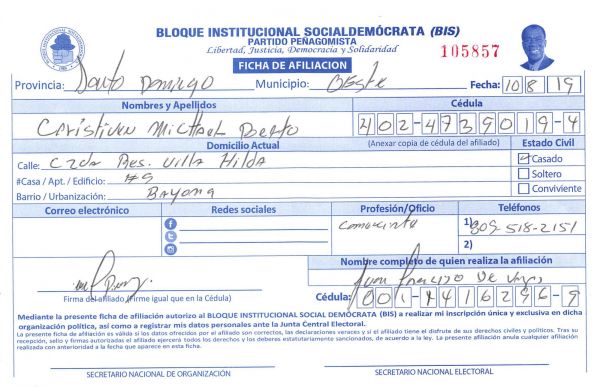 BLOQUE INSTITUCIONAL SOCIALDEMÓCRATA (BIS)
PARTIDO PEÑAGOMISTA
Libertad, Justicia, Democracia y Solidaridad
105857
FICHA DE AFILIACION
Provincia: Santo Domingo Municipio: Oeste Fecha: 10 8 19
Nombres y Apellidos Cédula
Cristiven Michael 402-4739019-4
Domicilio Actual (Anexar copia de cédula del afiliado) Estado Civil
Calle: C 2da Res. Villa Hilda Casado
#Casa / Apt. / Edificio: #9 Soltero
Barrio / Urbanización: Bayona Conviviente
Correo electrónico Redes sociales Profesión/Oficio Teléfonos
1) 809-518-2151
2)
Nombre completo de quien realiza la afiliación
Juan Francisco De
Firma del afiliado (Firme igual que en la Cédula) Cédula: 001-1416296-9
Mediante la presente ficha de afiliación autorizo al BLOQUE INSTITUCIONAL SOCIAL DEMÓCRATA (BIS) a realizar mi inscripción única y exclusiva en dicha
organización política, así como a registrar mis datos personales ante la Junta Central Electoral.
La presente ficha de afiliación es válida si los datos ofrecidos por el afiliado son correctos, las declaraciones veraces y si el afiliado tiene el disfrute de sus derechos civiles y políticos. Tras su
recepción, sello y firmas autorizadas el afiliado ejercerá todos los derechos y los deberes estatutariamente sancionados, de acuerdo a la ley. La presente afiliación anula cualquier afiliación
realizada con anterioridad a la fecha que aparece en esta ficha.
SECRETARIO NACIONAL DE ORGANIZACIÓN SECRETARIO NACIONAL ELECTORAL